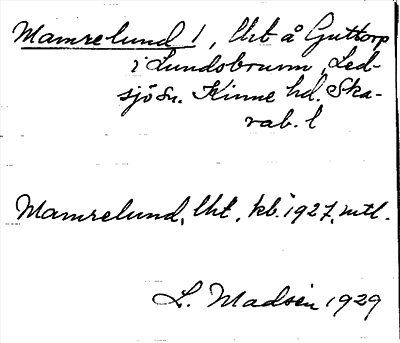 Mamrelund 1, lht å Guttorp
i Lundsbrunn, Led-
sjö sn. Kinne hd. Ska-
rab. l
Mamrelund, lht, kb. 1927, mtl.
L. Madsén 1929